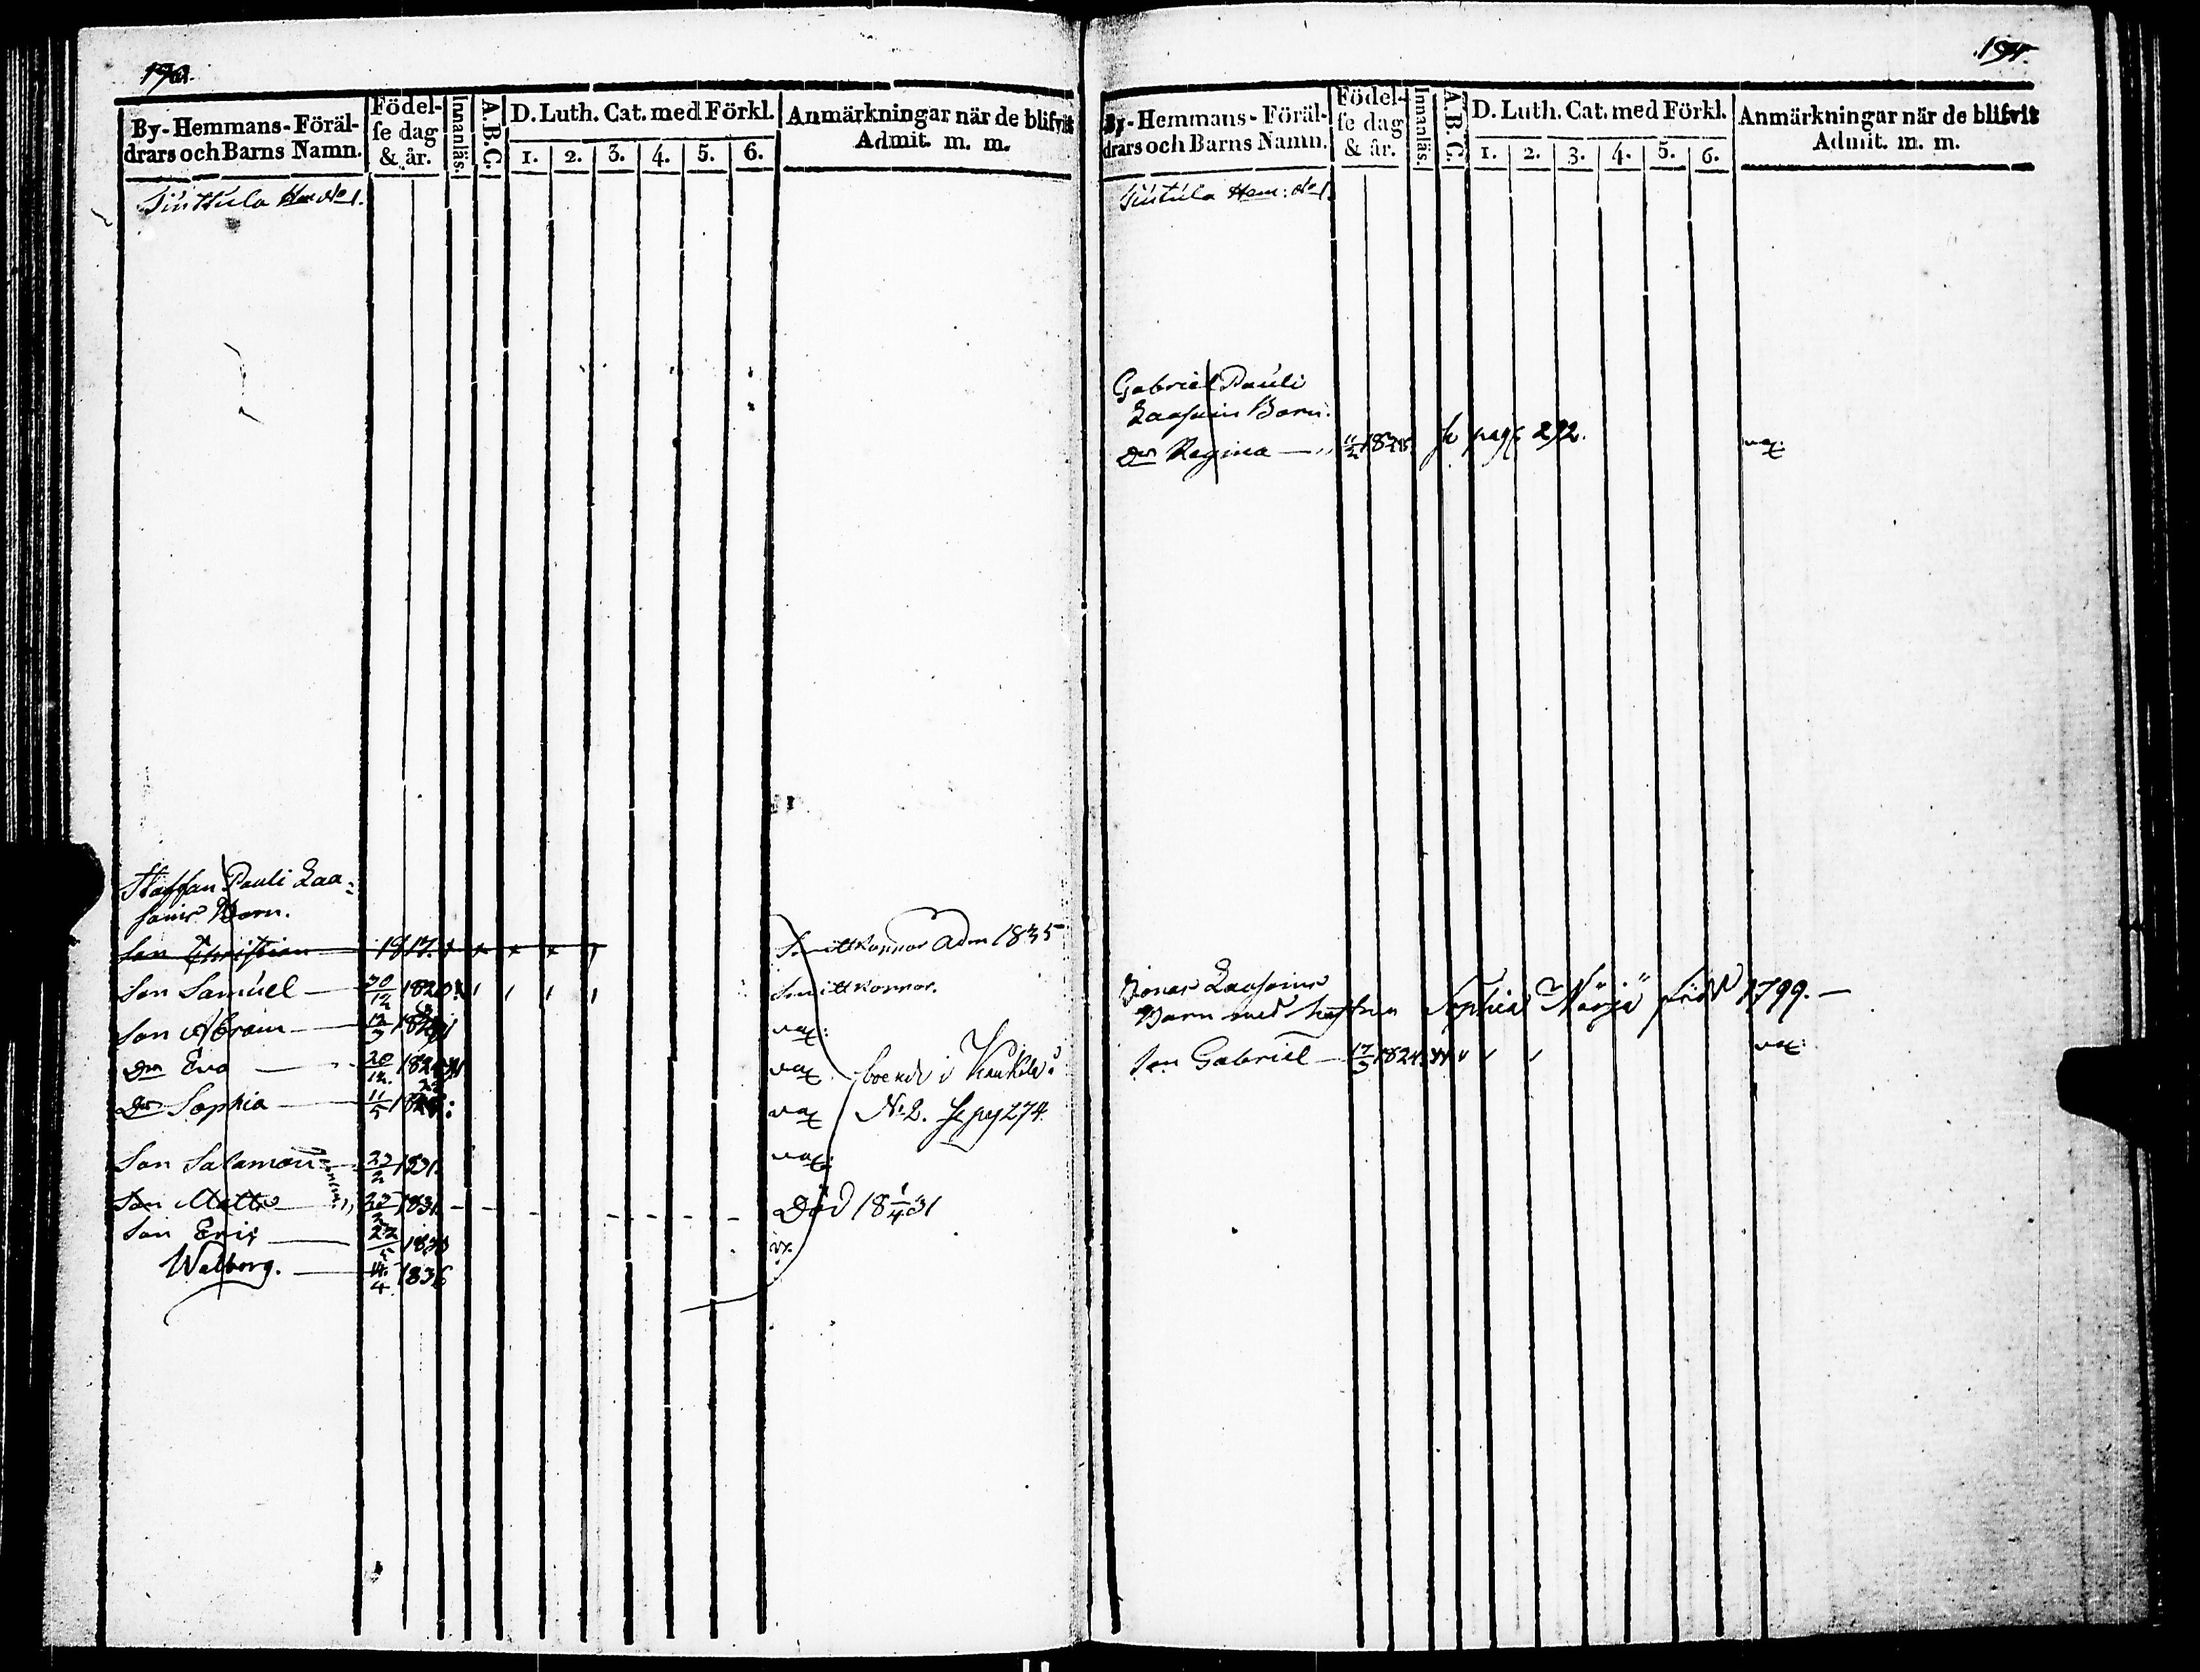 190.
By-Hemmans-Föräl-
drars och Barns Namn.
Födel-
se dag
& år.
Innanläs.
A.B.C.
D. Luth. Cat. med Förkl.
1. 2. 3. 4. 5. 6.
Anmärkningar når de blifvit
Admit. m. m.
Tinttula Hem No 1.
Staffan Pauli Laa-
sonis Barn.
Son Christian 1817. Smittkoppor Adm 1835
Son Samuel 30/12 1820 Smittkoppor.
Son Abram 12/3 vax:
Dr Eva 20/12 vax boende i Kaukola
Dr Sophia 11/5 vax No 2. se pag 274.
Son Salamon 22/2 1831. vax:
Son Matts 22/2 1831. Död 18 1/4 31
Son Eric 22/5 v.
Walborg. 14/4 1836
191.
By-Hemmans-Föräl-
drars och Barns Namn.
Födel-
se dag
& år.
Innanläs.
A.B.C.
D. Luth. Cat. med Förkl.
1. 2. 3. 4. 5. 6.
Anmärkningar når de blifvit
Admit. m. m.
Tintula Hem: No 1.
Gabriel Pauli
Laasonis Barn.
Dr Regina 11/2 se page 292. vax:
Jonas Laasonis
Barn med hustrun Sophia född 1799.
Son Gabriel 17/3 1824. vax: